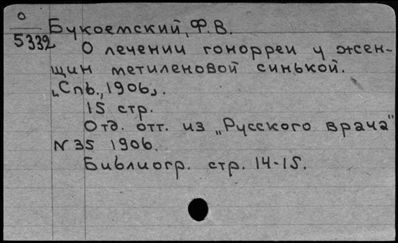 О
5332
Букоемский, Ф.В.
О лечении гонорреи у жен-
щин метиленовой синькой.
„Спб., 1906„.
15 стр.
Отд. отт. из „Русского врача"
№35 1906.
Библиогр. стр. 14-15.